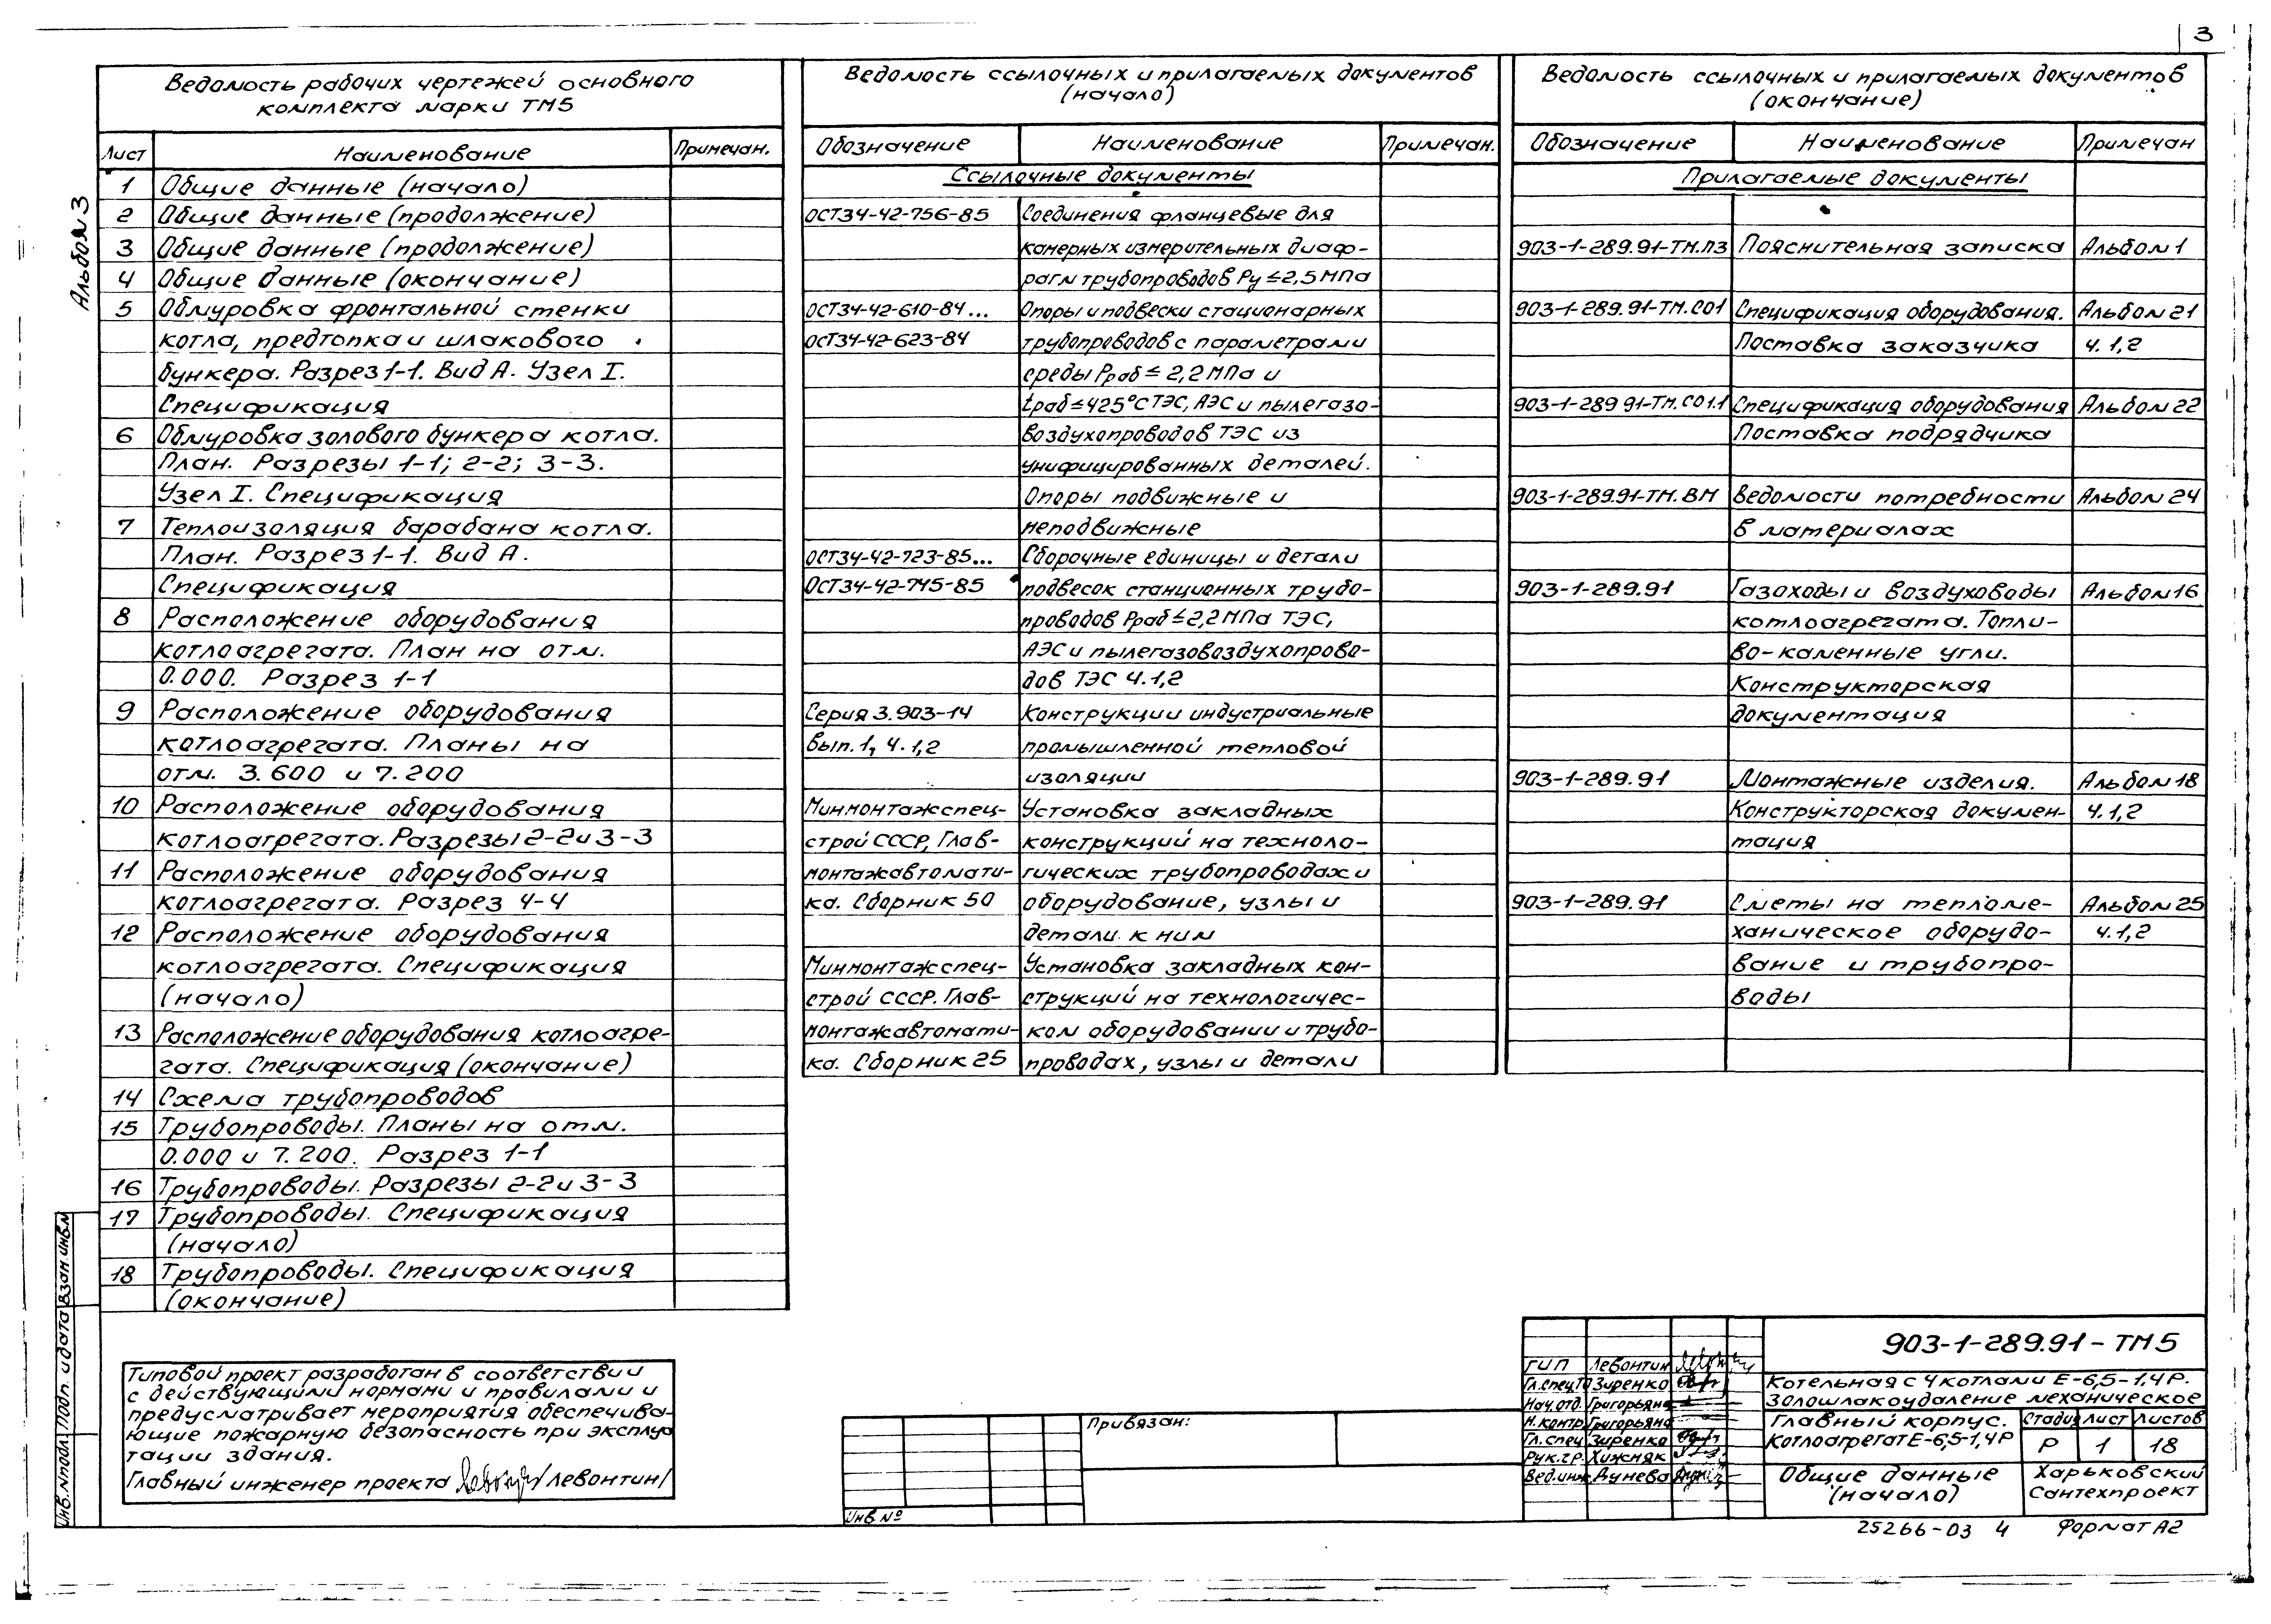 3
Альбом 3
Ведомость рабочих чертежей основного
комплекта марки ТМ5
Лист Наименование Примечан.
1 Общие данные (начало)
2 Общие данные (продолжение)
3 Общие данные (продолжение)
4 Общие данные (окончание)
5 Обмуровка фронтальной стенки
котла, предтопка и шлакового
бункера. Разрез 1-1. Вид А. Узел I.
Спецификация
6 Обмуровка золового бункера котла.
План. Разрезы 1-1; 2-2; 3-3.
Узел I. Спецификация
7 Теплоизоляция барабана котла.
План. Разрез 1-1. Вид А.
Спецификация
8 Расположение оборудования
котлоагрегата. План на отм.
0.000. Разрез 1-1
9 Расположение оборудования
котлоагрегата. Планы на
отм. 3.600 и 7.200
10 Расположение оборудования
котлоагрегата. Разрезы 2-2 и 3-3
11 Расположение оборудования
котлоагрегата. Разрез 4-4
12 Расположение оборудования
котлоагрегата. Спецификация
(начало)
13 Расположение оборудования котлоагре-
гата. Спецификация (окончание)
14 Схема трубопроводов
15 Трубопроводы. Планы на отм.
0.000 и 7.200. Разрез 1-1
16 Трубопроводы. Разрезы 2-2 и 3-3
17 Трубопроводы. Спецификация
(начало)
18 Трубопроводы. Спецификация
(окончание)
Ведомость ссылочных и прилагаемых документов
(начало)
Обозначение Наименование Примечан.
Ссылочные документы
ОСТ34-42-756-85 Соединения фланцевые для
камерных измерительных диаф-
рагм трубопроводов Ру ≤ 2,5 МПа
ОСТ34-42-610-84... Опоры и подвески стационарных
ОСТ34-42-623-84 трубопроводов с параметрами
среды Рраб ≤ 2,2 МПа и
tраб ≤ 425°С ТЭС, АЭС и пылегазо-
воздухопроводов ТЭС из
унифицированных деталей.
Опоры подвижные и
неподвижные
ОСТ34-42-723-85... Сборочные единицы и детали
ОСТ34-42-745-85 подвесок станционных трубо-
проводов Рраб ≤ 2,2 МПа ТЭС,
АЭС и пылегазовоздухопрово-
дов ТЭС Ч.1,2
Серия 3.903-14 Конструкции индустриальные
Вып.1, ч.1,2 промышленной тепловой
изоляции
Минмонтажспец- Установка закладных
строй СССР, Глав- конструкций на техноло-
монтажавтомати- гических трубопроводах и
ка. Сборник 50 оборудование, узлы и
детали к ним
Минмонтажспец- Установка закладных кон-
строй СССР. Глав- струкций на технологичес-
монтажавтомати- ком оборудовании и трубо-
ка. Сборник 25 проводах, узлы и детали
Ведомость ссылочных и прилагаемых документов
(окончание)
Обозначение Наименование Примечан
Прилагаемые документы
903-1-289.91-ТМ.ПЗ Пояснительная записка Альбом 1
903-1-289.91-ТМ.СО1 Спецификация оборудования. Альбом 21
Поставка заказчика ч. 1,2
903-1-289 91-ТМ.СО1.1 Спецификация оборудования Альбом 22
Поставка подрядчика
903-1-289.91-ТМ.ВМ Ведомости потребности Альбом 24
в материалах
903-1-289.91 Газоходы и воздуховоды Альбом 16
котлоагрегата. Топли-
во-каменные угли.
Конструкторская
документация
903-1-289.91 Монтажные изделия. Альбом 18
Конструкторская докумен- ч.1,2
тация
903-1-289.91 Сметы на тепломе- Альбом 25
ханическое оборудо- ч.1,2
вание и трубопро-
воды
Типовой проект разработан в соответствии
с действующими нормами и правилами и
предусматривает мероприятия обеспечива-
ющие пожарную безопасность при эксплуа
тации здания.
Главный инженер проекта /Левонтин/
Инв.№подл. Подп. и дата Взам.инв.№
Привязан:
Инв №
ГИП Левонтин
Гл.спец.ТО Зиренко
Нач.отд. Григорьянц
Н.контр. Григорьянц
Гл.спец Зиренко
Рук.гр. Хижняк
Вед.инж Дунева
903-1-289.91-ТМ5
Котельная с 4 котлами Е-6,5-1,4Р.
Золошлакоудаление механическое
Главный корпус.
Котлоагрегат Е-6,5-1,4Р
Стадия Лист Листов
Р 1 18
Общие данные
(начало)
Харьковский
Сантехпроект
25266-03 4 Формат А2